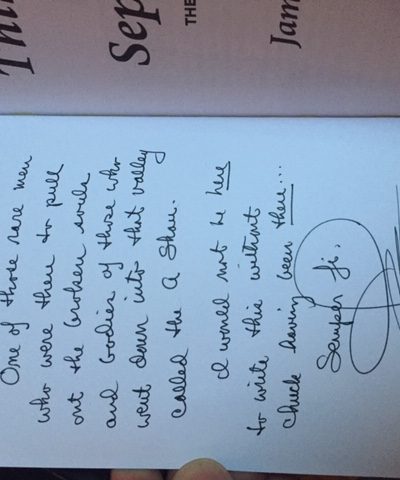 Sep
THE
Jam
One of those rare men
who were there to pull
out the broken souls
and bodies of those who
went down into that valley
called the A Shau.
I would not be here
to write this without
Chuck having been there...
Semper Fi,